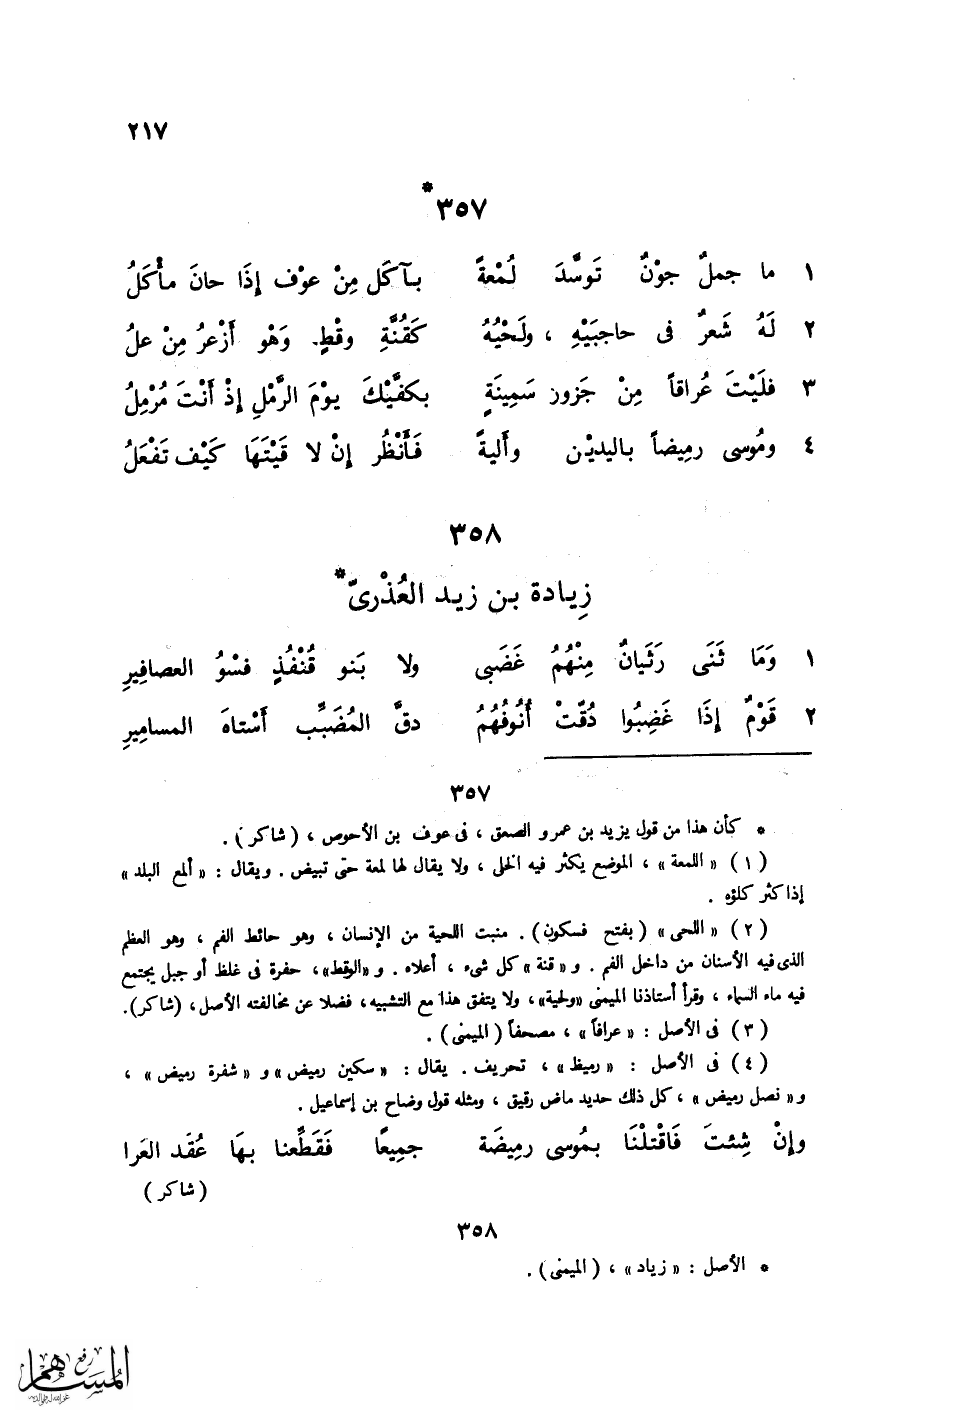 ٢١٧
٣٥٧*
١ ما جملٌ جوْنٌ تَوسَّدَ لُمْعةً بآكَل مِنْ عوْف إذَا حانَ مأْكَلُ
٢ لَهُ شَعرٌ فى حاجبَيْهِ ، ولَحْيُهُ كَقُنَّةِ وقْطٍ. وَهْو أَزْعرُ مِنْ علُ
٣ فلَيْتَ عُراقاً مِنْ جَزور سَمِينَةٍ بكفَّيْكَ يوْمَ الرَّمْلِ إذْ أَنْتَ مُرْمِلُ
٤ ومُوسى رمِيضاً باليديْن وأَليةً فَأَنْظُر إنْ لا قَيْتَهَا كَيْف تَفْعَلُ
٣٥٨
زِيادة بن زيد العُذْرىّ*
١ وَمَا ثَنَى رَثَيانٌ مِنْهُمُ غَضَبى ولا بَنو قُنْفُذٍ فسْوُ العصافِيرِ
٢ قَوْمٌ إذَا غَضِبُوا دُقَّتْ أُنُوفُهُمُ دقَّ المُضَبِّب أَسْتاهَ المسامِيرِ
٣٥٧
* كأن هذا من قول يزيد بن عمرو الصعق ، فى عوف بن الأحوص ، (شاكر) .
(١) « اللمعة » ، الموضع يكثر فيه الخلى ، ولا يقال لها لمعة حتى تبيض . ويقال : « ألمع البلد »
إذا كثر كلؤه .
(٢) « اللحى » (بفتح فسكون) . منبت اللحية من الإنسان ، وهو حائط الفم ، وهو العظم
الذى فيه الأسنان من داخل الفم . و « قنة » كل شىء ، أعلاه . و « الوقط » ، حفرة فى غلظ أو جبل يجتمع
فيه ماء السماء ، وقرأ أستاذنا الميمنى « ولحية » ، ولا يتفق هذا مع التشبيه ، فضلا عن مخالفته الأصل ، (شاكر) .
(٣) فى الأصل : « عرافاً » ، مصحفاً (الميمنى) .
(٤) فى الأصل : « رميظ » ، تحريف . يقال : « سكين رميض » و « شفرة رميض » ،
و « نصل رميض » ، كل ذلك حديد ماض رقيق ، ومثله قول وضاح بن إسماعيل .
وإنْ شِئتَ فَاقْتلْنَا بمُوسى رمِيضَة جمِيعًا فَقَطِّعنا بهَا عُقَد العَرا
(شاكر)
٣٥٨
* الأصل : « زياد » ، (الميمنى) .
رفع
المساهم